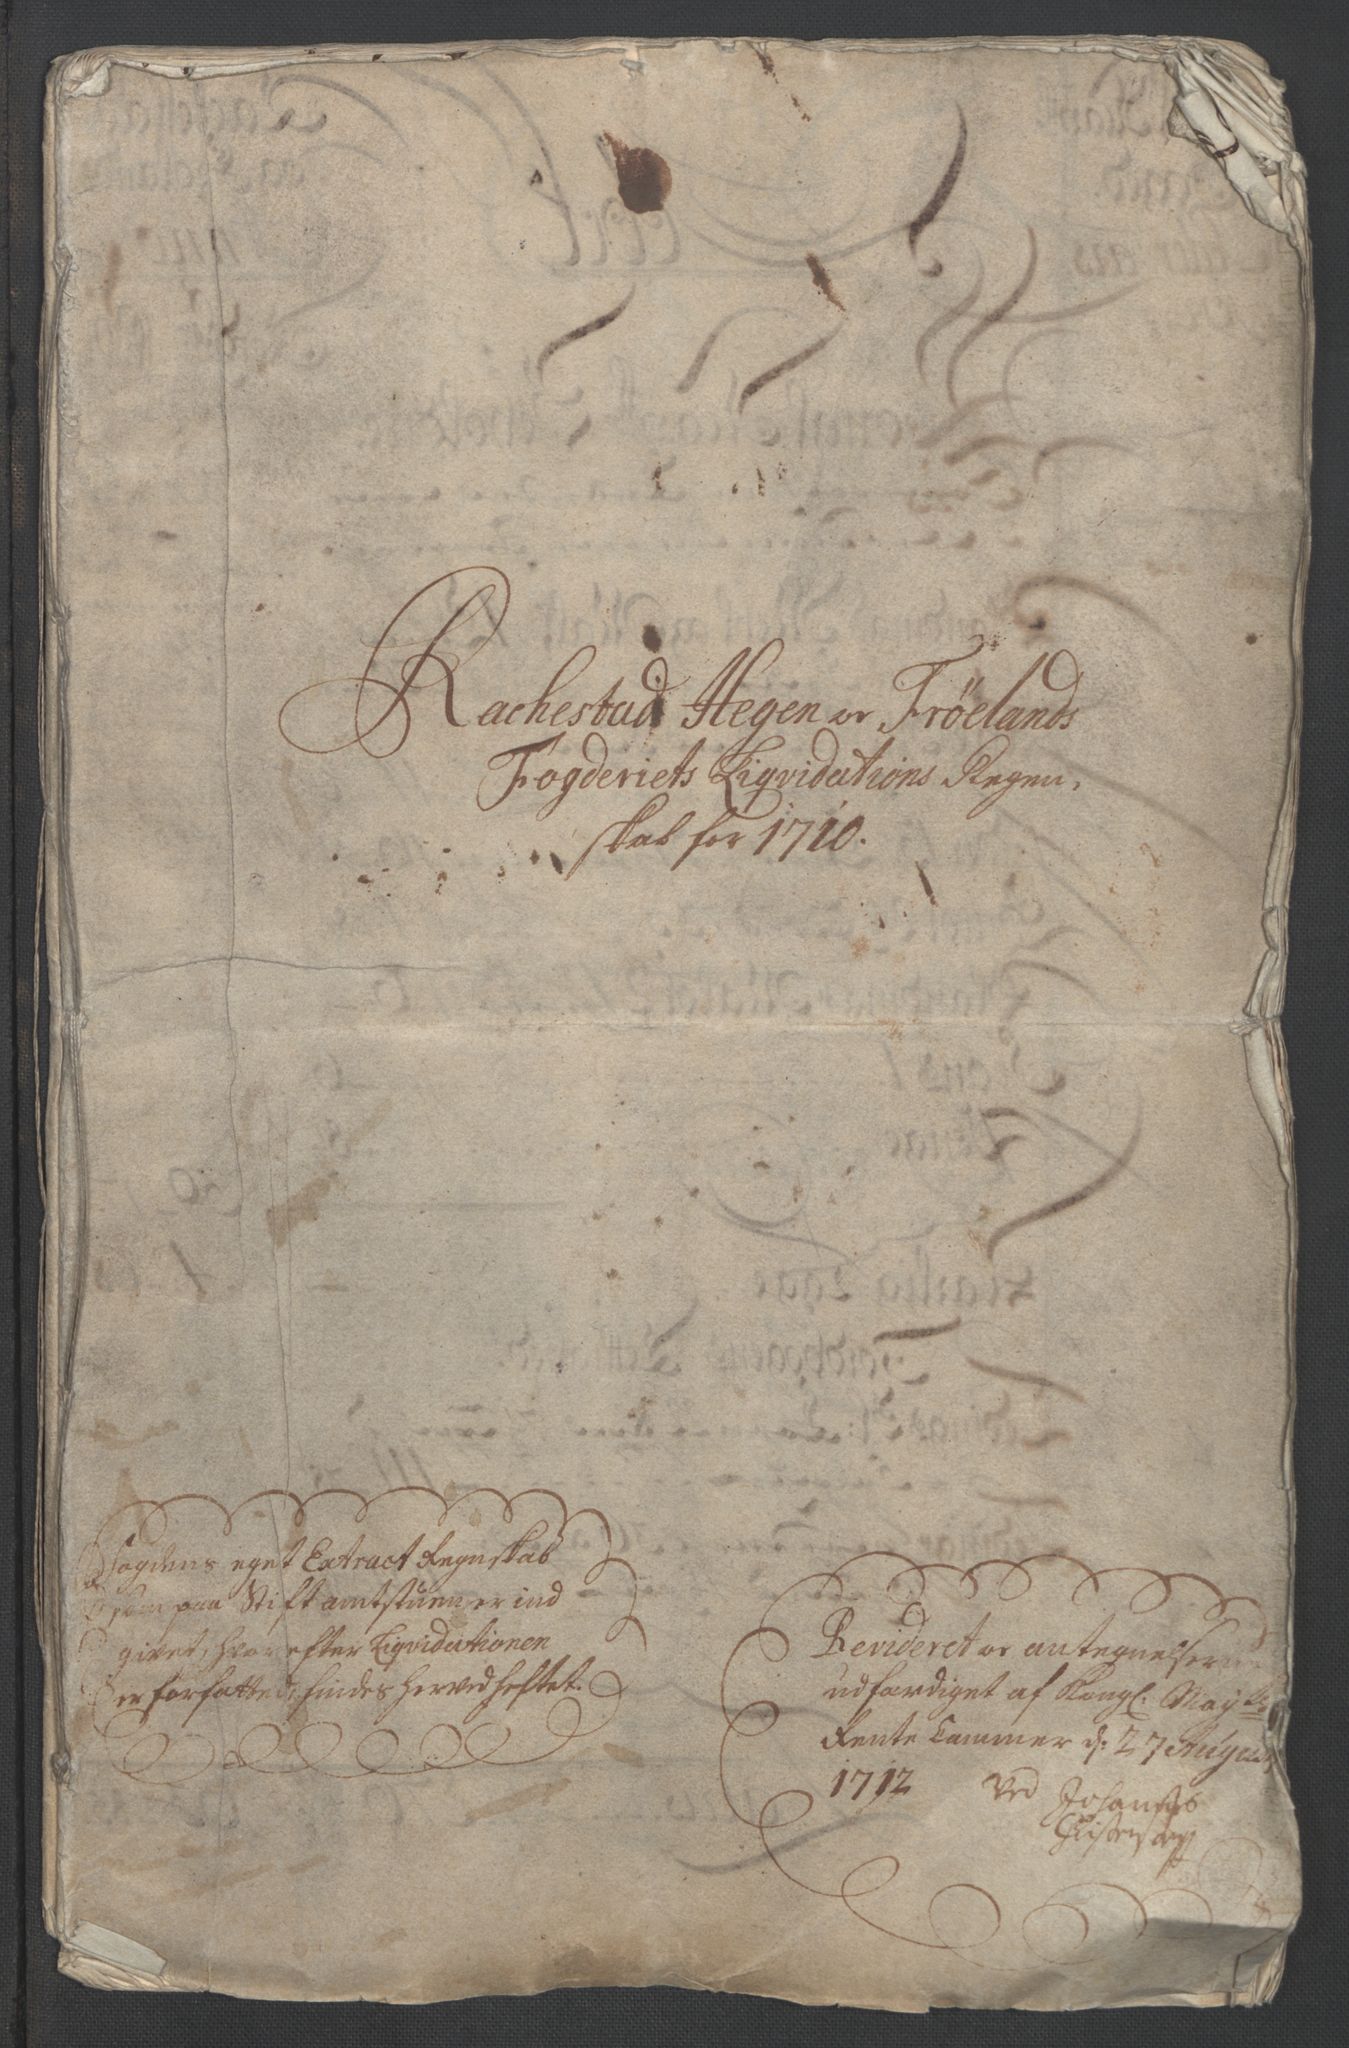 Rachestad Hegen or Fröelands
Fogderiets Liqvidations Regen-
skab for 1710.
Fogdens eget Extract Regnskab
som paa Stiftamtstuen er ind
givet, hvor efter Liqvidationen
er forfattet, findes herved heftet.
Revideret or antegnelserne
udfærdiget af Kongl. Mayts
Rente Cammer d: 27 August
1712 Ved Johannes